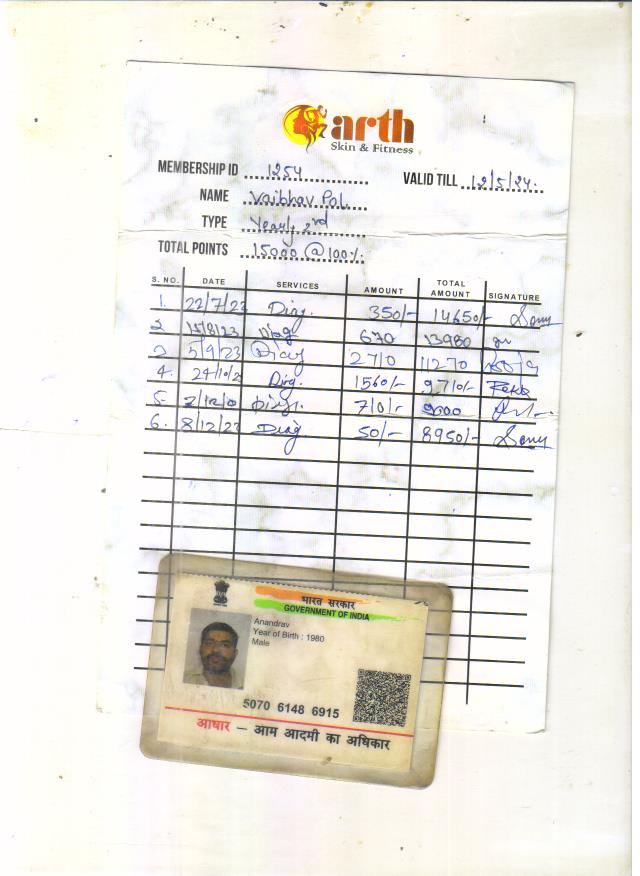 arth
Skin & Fitness
MEMBERSHIP ID 1254
VALID TILL 12/5/24.
NAME Vaibhav Pol.
TYPE Yearly 2nd
TOTAL POINTS 15000 @ 100%.
S. NO. DATE SERVICES AMOUNT TOTAL AMOUNT SIGNATURE
1. 22/7/23 Diag. 350/- 14650/-
2 15/8/23 Diag 670 13980
3 5/9/23 Diag 2710 11270
4. 24/10/2 Diag. 1560/- 9710/- Rekha
5. Diag. 710/- 9000
6. 8/12/23 Diag 50/- 8950/-
भारत सरकार
GOVERNMENT OF INDIA
Anandrav
Year of Birth : 1980
Male
5070 6148 6915
आधार – आम आदमी का अधिकार